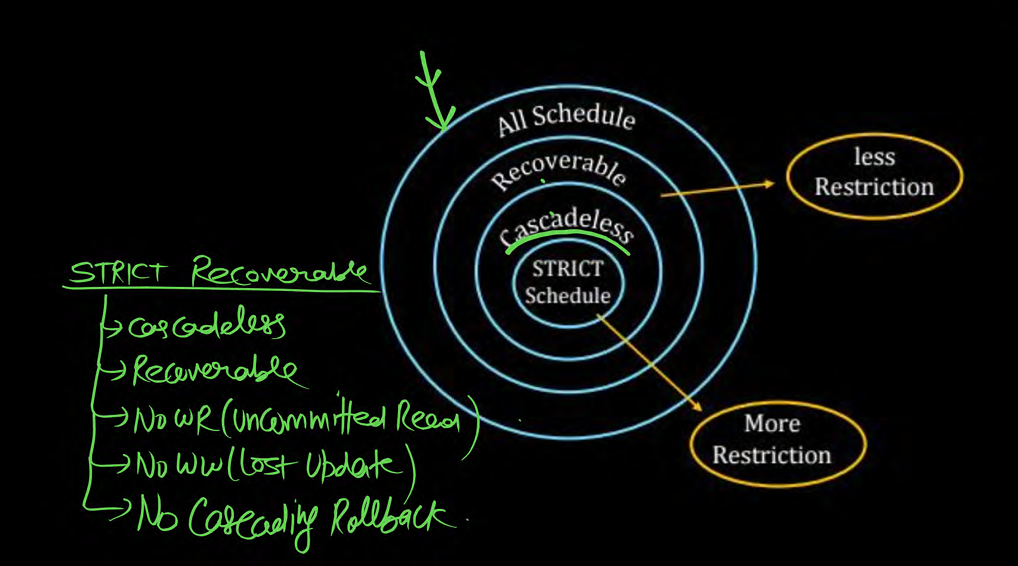 All Schedule
Recoverable
Cascadeless
STRICT
Schedule
less
Restriction
More
Restriction
STRICT Recoverable
→ cascadeless
→ Recoverable
→ No WR (Uncommitted Read)
→ No WW (Lost Update)
→ No Cascading Rollback.